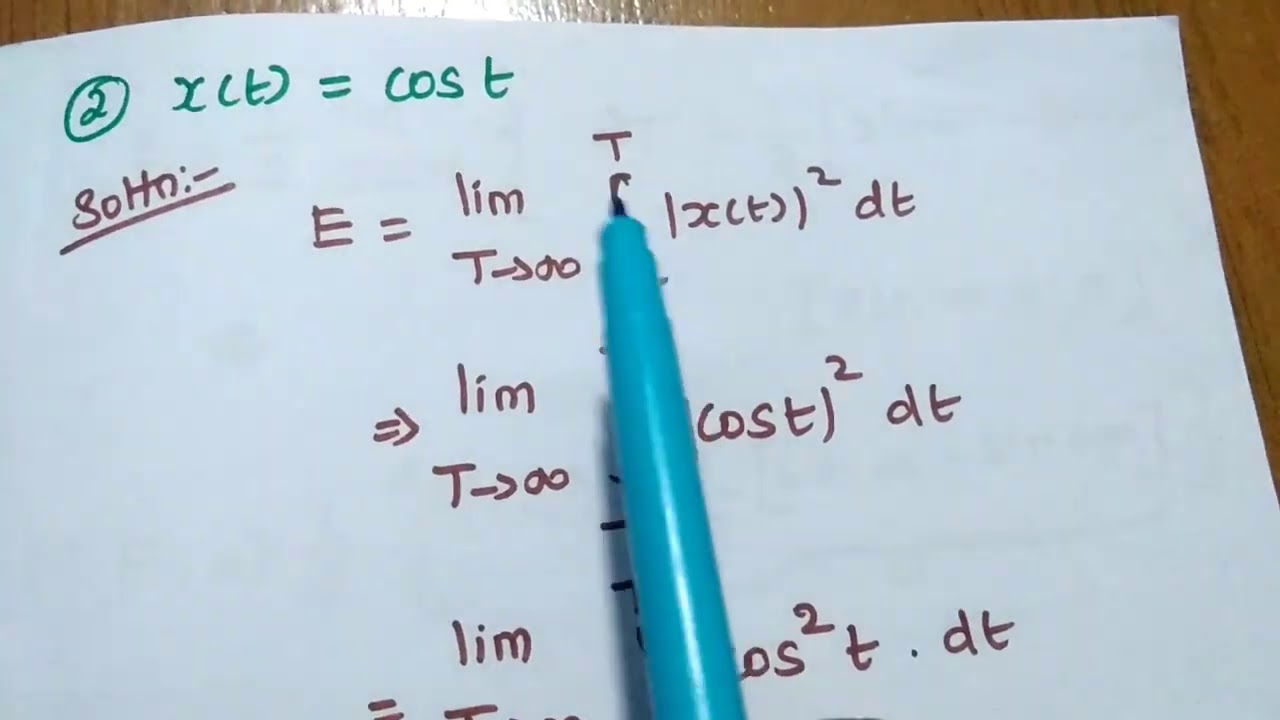 ② x(t) = cos t
Soltn:-
E = lim T→∞ ∫ T |x(t))² dt
⇒ lim T→∞ cos t)² dt
= lim T→∞ os² t . dt